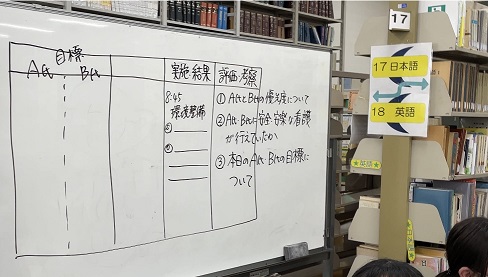 目標
Aくん Bくん
実施・結果
評価・考察
8:45
環境整備
①
②
① AくんとBくんの優先度について
② Aくん Bくんに安全・安楽な看護
が行えていたか
③ 本日のAくん・Bくんの目標に
ついて
17
17 日本語
18 英語
★英語★